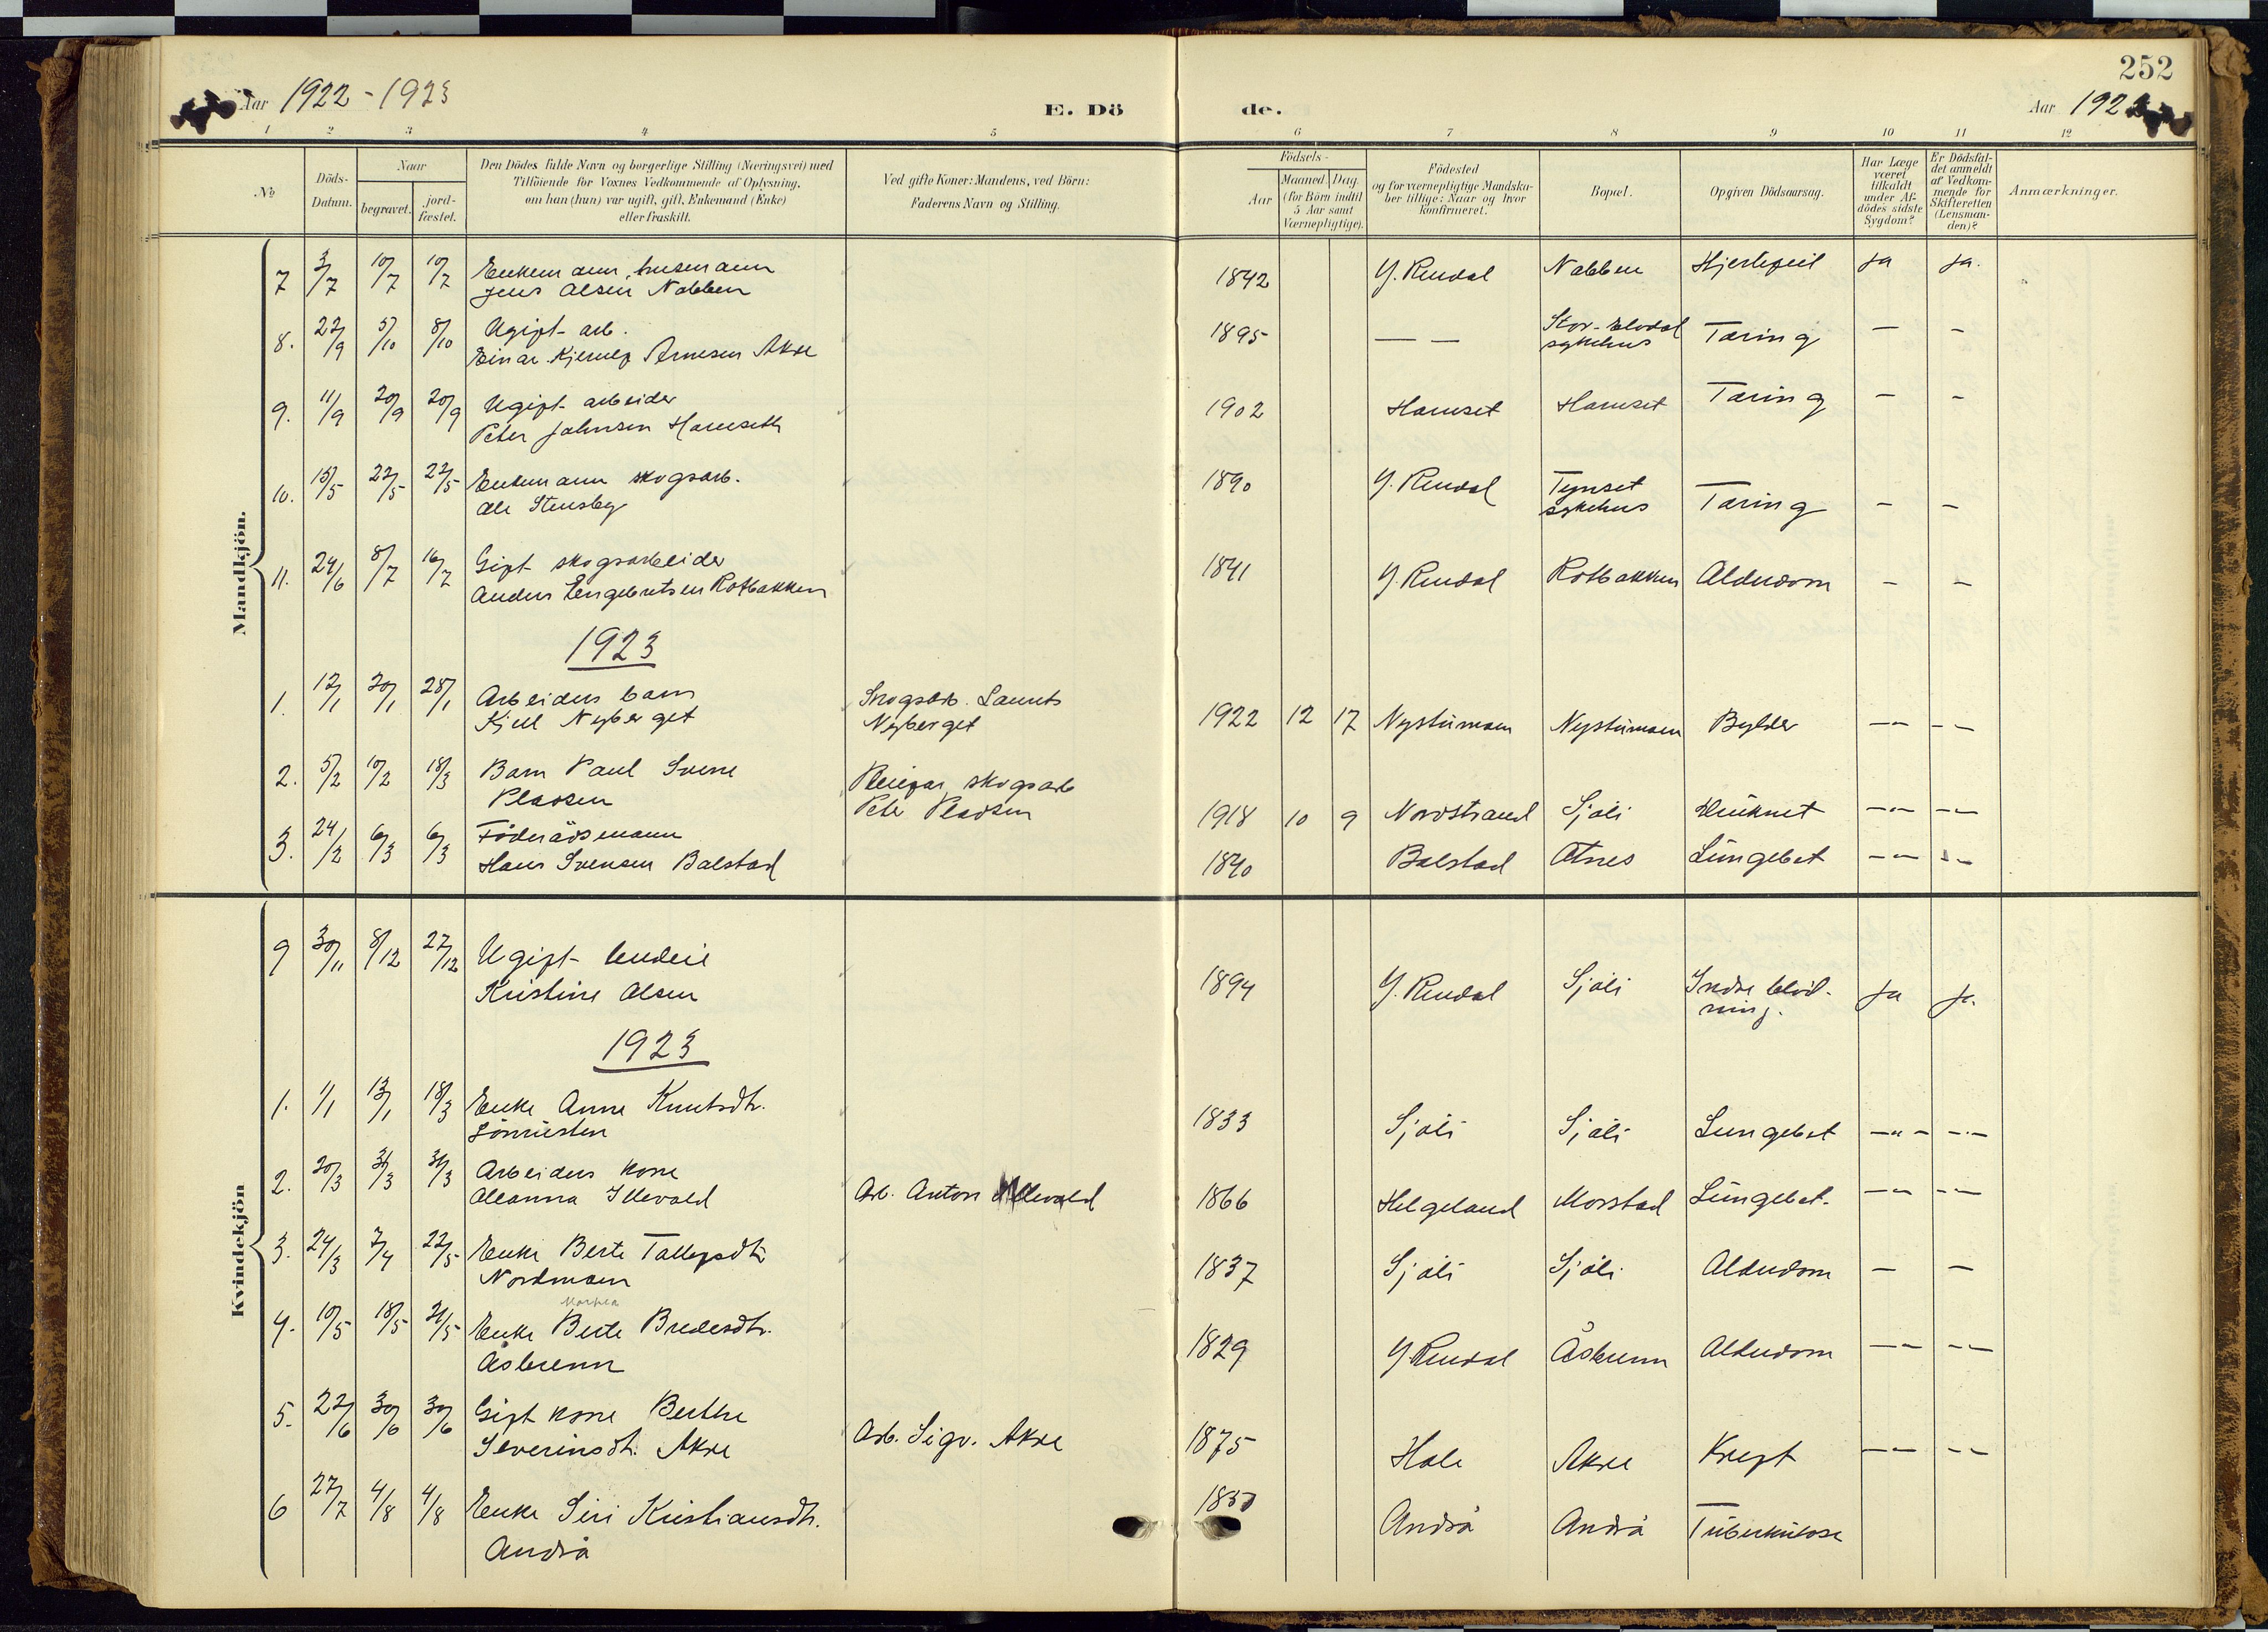 252
Aar 1922-1923
E. Döde.
Aar 192
1 2 3 4 5 6 7 8 9 10 11 12
No
Döds-Datum.
Naar
begravet.
jord-fæstet.
Den Dödes fulde Navn og borgerlige Stilling (Næringsvei) med
Tilföiende for Voxnes Vedkommende af Oplysning,
om han (hun) var ugift, gift, Enkemand (Enke)
eller fraskilt.
Ved gifte Koner: Mandens, ved Börn:
Faderens Navn og Stilling.
Födsels-
Aar
Maaned Dag
(for Börn indtil
5 Aar samt
Værnepligtige).
Födested
og for værnepligtige Mandska-
ber tillige: Naar og hvor
konfirmeret.
Bopæl.
Opgiven Dödsaarsag.
Har Læge
været
tilkaldt
under Af-
dödes sidste
Sygdom?
Er Dödsfal-
det anmeldt
af Vedkom-
mende for
Skifteretten
(Lensman-
den)?
Anmærkninger.
Mandkjön.
7 3/7 10/7 10/7 Enkemann, husmann
Jens Olsen Nabben
1842 Y. Rendal Nabben Hjertefeil ja ja.
8. 22/9 5/10 8/10 Ugift arb.
Einar Arnesen Akre
1895 — — Stor-Elvdal
sykehus Tæring — —
9. 11/9 20/9 20/9 Ugift arbeider
Peter Johnsen Harnseth
1902 Harnset Harnset Tæring — —
10. 15/5 22/5 22/5 Enkemann skogsarb.
Ole Stensby
1890 Y. Rendal Tynset
sykehus Tæring — —
11. 24/6 8/7 16/7 Gift skogsarbeider
Anders Engebretsen Rotbakken
1841 Y. Rendal Rotbakken Alderdom — —
1923
1. 12/1 20/1 28/1 Arbeiders barn
Kjell Nyberget
Skogsarb. Laurits
Nyberget
1922 12 17 Nystumoen Nystumoen Bylder — — — —
2. 5/2 10/2 18/3 Barn Paul Sverre
Pladsen
Pleiefar, skogsarb
Peter Pladsen
1918 10 9 Nordstrand Sjöli — — — —
3. 24/2 6/3 6/3 Föderådsmann
Hans Svensen Balstad
1840 Balstad Atnes Lungebet — — — —
Kvindekjön
9 30/11 8/12 27/12 Ugift budeie
Kristine Olsen
1894 Y. Rendal Sjöli Indre blöd-
ning. Ja Ja.
1923
1. 1/1 13/1 18/3 Enke Anne Knutsdtr.
1833 Sjöli Sjöli Lungebet — — — —
2. 20/3 31/3 31/3 Arbeiders kone
Oleanna Illevold
Arb. Anton Illevold
1866 Helgeland Morstad Lungebet. — — — —
3. 24/3 7/4 22/5 Enke Berte Tollefsdtr
Nordmoen
1837 Sjöli Sjöli Alderdom — —
4. 10/5 18/5 21/5 Enke Berte Bredesdtr.
Åsbrenn
1829 Y. Rendal Åsbrenn Alderdom — — — —
5. 22/6 30/6 30/6 Gift kone Berthe
Severinsdtr. Akre
Arb. Sigv. Akre
1875 Hole Akre Kreft — — — —
6 27/7 4/8 4/8 Enke Siri Kristiansdtr.
Andrå
Andrå Andrå Tuberkulose